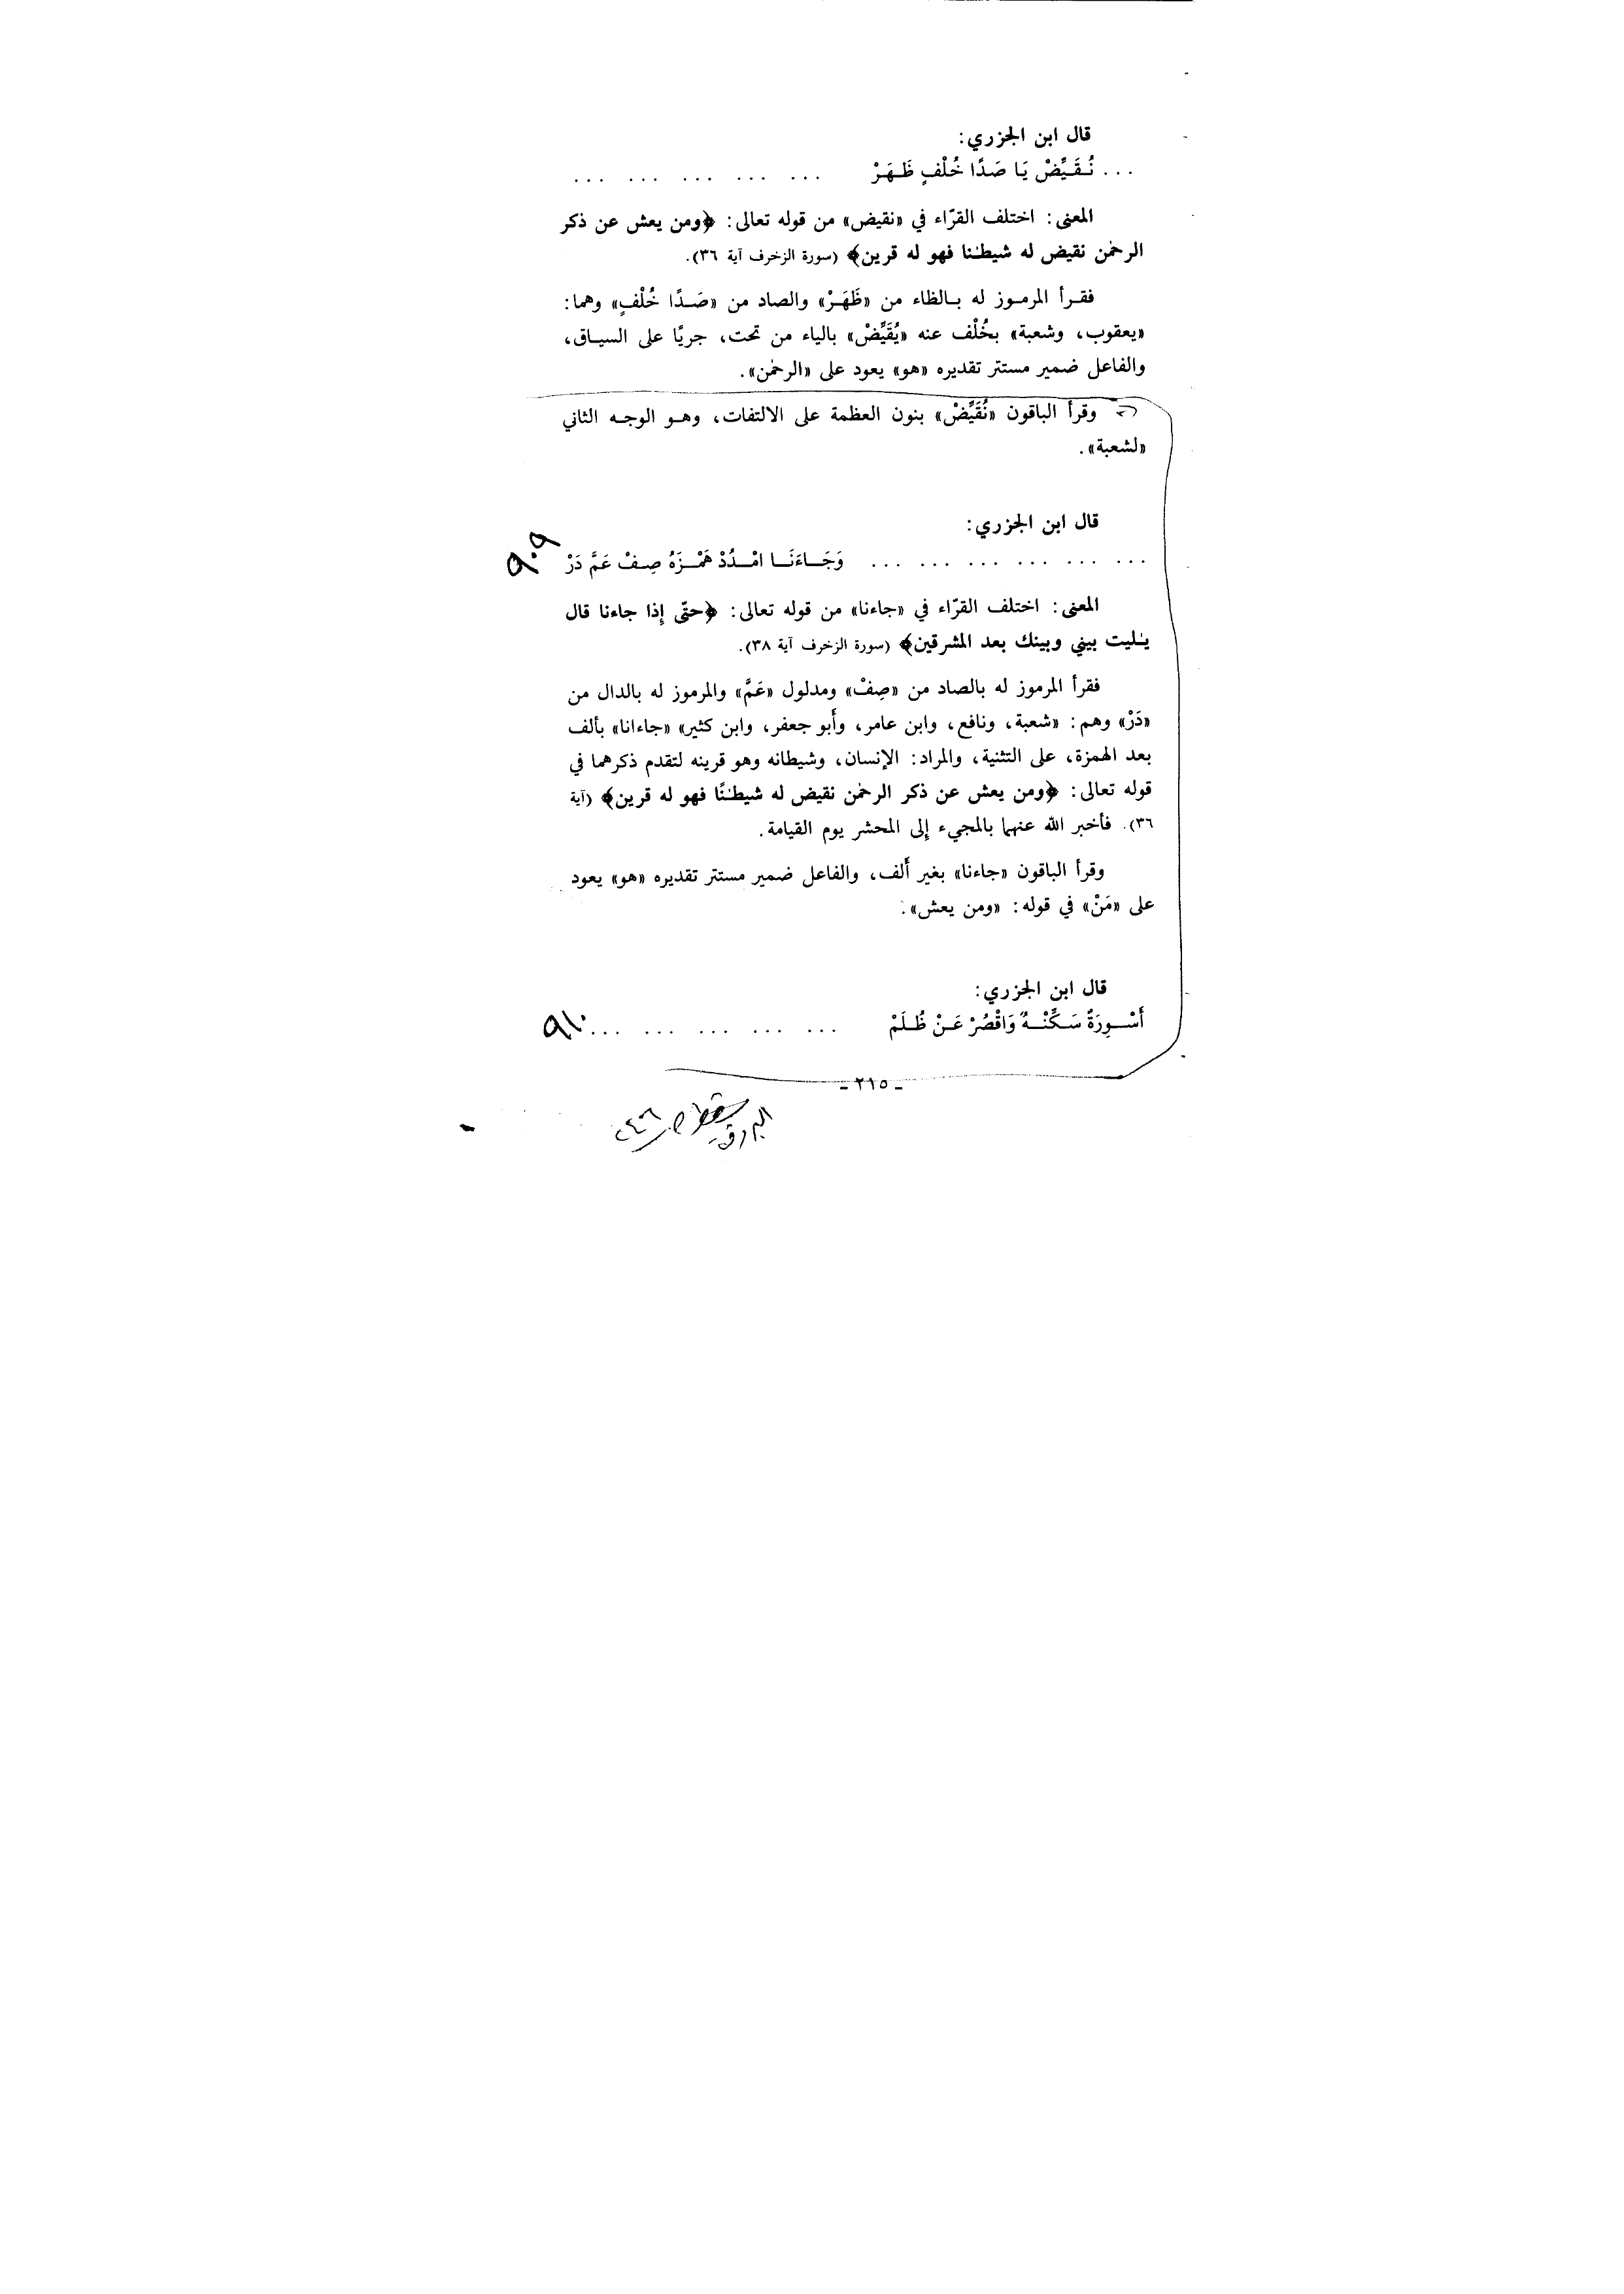 قال ابن الجزري:
... نُـقَـيِّضْ يَا صَدًا خُلْفٍ ظَـهَـرْ ... ... ... ... ...
المعنى: اختلف القرّاء في «نقيض» من قوله تعالى: ﴿ومن يعش عن ذكر
الرحمٰن نقيض له شيطـٰنا فهو له قرين﴾ (سورة الزخرف آية ٣٦).
فقـرأ المرمـوز له بـالظاء من «ظَهَـرْ» والصاد من «صَـدًا خُلْفٍ» وهما:
«يعقوب، وشعبة» بخُلْف عنه «يُقَيِّضْ» بالياء من تحت، جريًا على السيـاق،
والفاعل ضمير مستتر تقديره «هو» يعود على «الرحمٰن».
وقرأ الباقون «نُقَيِّضْ» بنون العظمة على الالتفات، وهـو الوجـه الثاني
«لشعبة».
قال ابن الجزري:
... ... ... ... ... ... وَجَـاءَنَـا امْـدُدْ هَمْـزَهُ صِـفْ عَمَّ دَرْ ٩٠٩
المعنى: اختلف القرّاء في «جاءنا» من قوله تعالى: ﴿حتّى إذا جاءنا قال
يـٰليت بيني وبينك بعد المشرقين﴾ (سورة الزخرف آية ٣٨).
فقرأ المرموز له بالصاد من «صِفْ» ومدلول «عَمَّ» والمرموز له بالدال من
«دَرْ» وهم: «شعبة، ونافع، وابن عامر، وأبو جعفر، وابن كثير» «جاءانا» بألف
بعد الهمزة، على التثنية، والمراد: الإنسان، وشيطانه وهو قرينه لتقدم ذكرهما في
قوله تعالى: ﴿ومن يعش عن ذكر الرحمٰن نقيض له شيطـٰنًا فهو له قرين﴾ (آية
٣٦). فأخبر الله عنهما بالمجيء إلى المحشر يوم القيامة.
وقرأ الباقون «جاءنا» بغير ألف، والفاعل ضمير مستتر تقديره «هو» يعود
على «مَنْ» في قوله: «ومن يعش».
قال ابن الجزري:
أَسْـوِرَةٌ سَـكِّنْـهُ وَاقْصُرْ عَـنْ ظُـلَمْ ... ... ... ... ... ٩١٠
- ٢١٥ -